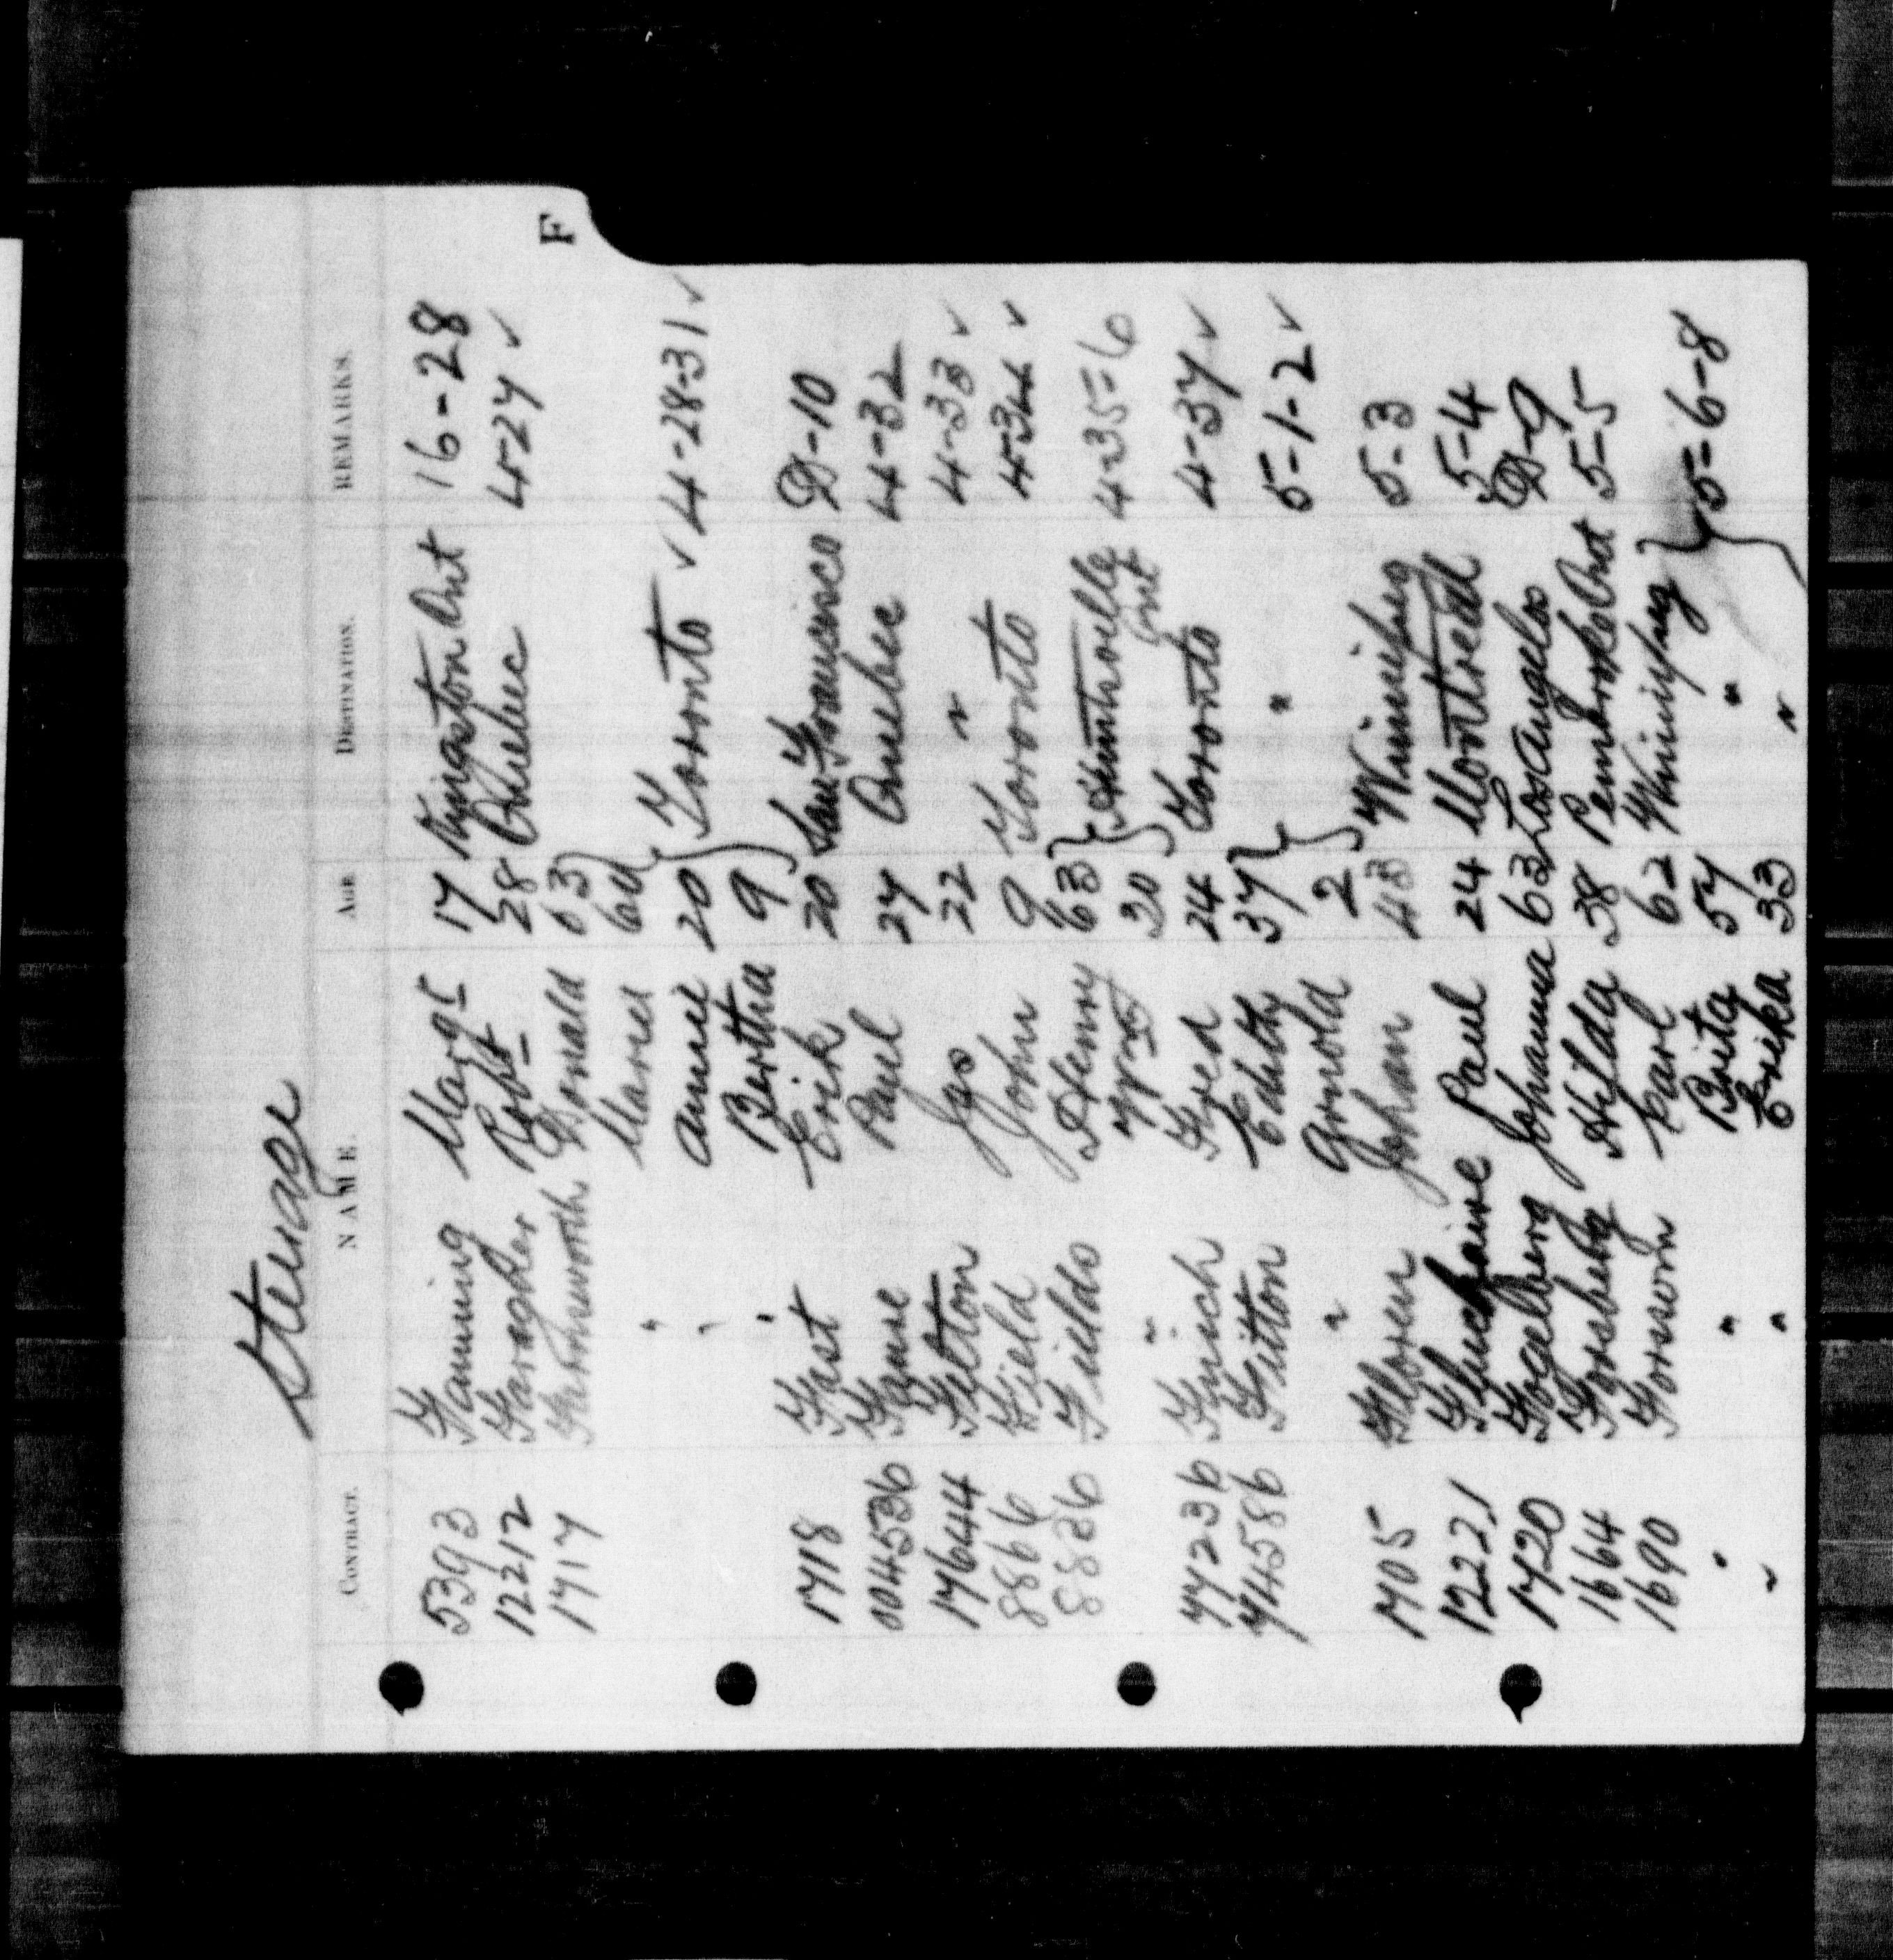 Steerage
F
CONTRACT. NAME. AGE DESTINATION. REMARKS.
5393 Fanning Margt 17 Kingston Ont 16-28
12212 Faragher Robt 28 Quebec 4-27 ✓
1717 Farnsworth Donald 63
" 60
" Annie 20 } Toronto ✓ 4-28-31 ✓
" Bertha 9
1718 Fast Erik 20 San Francisco D-10
004536 Paul 27 Quebec 4-32
17644 Felton Jas 22 " 4-33 ✓
8866 Field John 9 Toronto 4-34 ✓
8836 Fields Henry 63 } Huntsville Ont 4-35-6
" 30
77236 Finch Fred 24 Toronto 4-37 ✓
74586 Fitton Edith 37 } " 5-1-2 ✓
" Arnold 2
1705 Floren Johan 43 Winnipeg 5-3
17221 Paul 24 Montreal 5-4
1720 Fogelberg Johanna 63 Los Angeles D-9
1664 Forsberg Hilda 38 Pembroke Ont 5-5
1690 Forsson Carl 62 Winnipeg
" " Brita 57 " } 5-6-8
" " Erika 33 "